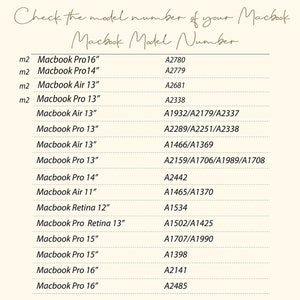 Check the model number of your Macbook
Macbook Model Number
m2 Macbook Pro16" A2780
m2 Macbook Pro14" A2779
m2 Macbook Air 13" A2681
m2 Macbook Pro 13" A2338
Macbook Air 13" A1932/A2179/A2337
Macbook Pro 13" A2289/A2251/A2338
Macbook Air 13" A1466/A1369
Macbook Pro 13" A2159/A1706/A1989/A1708
Macbook Pro 14" A2442
Macbook Air 11" A1465/A1370
Macbook Retina 12" A1534
Macbook Pro Retina 13" A1502/A1425
Macbook Pro 15" A1707/A1990
Macbook Pro 15" A1398
Macbook Pro 16" A2141
Macbook Pro 16" A2485